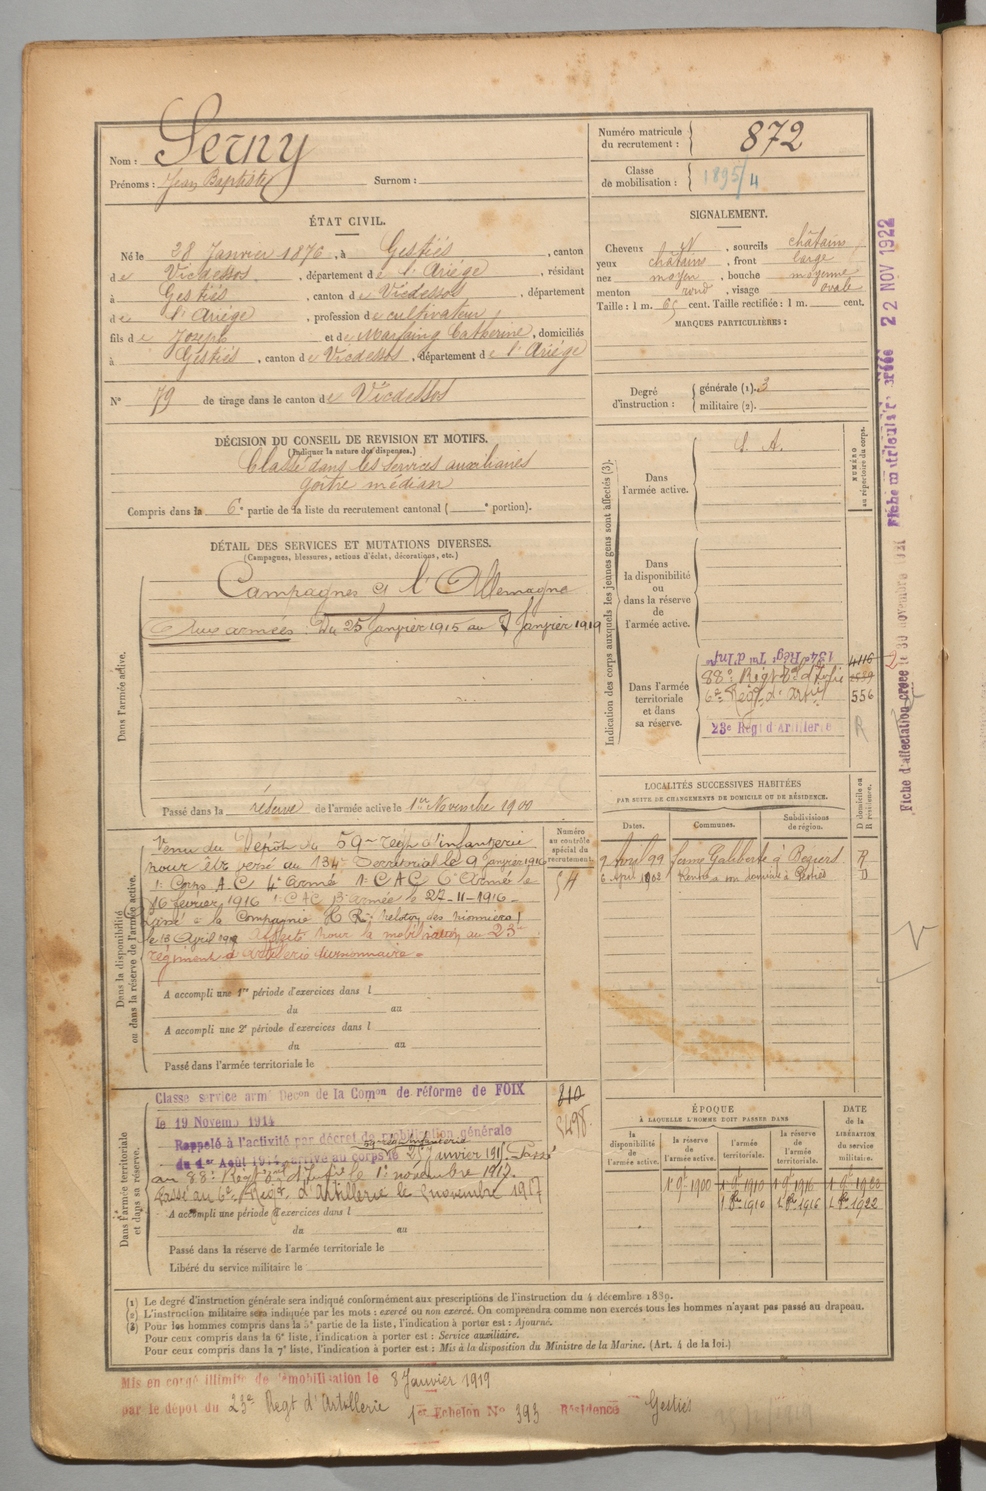 Nom : Serny
Prénoms : Jean Baptiste Surnom :
Numéro matricule du recrutement : 872
Classe de mobilisation : 1895/4
ÉTAT CIVIL.
Né le 28 Janvier 1876, à Gestiés, canton
de Vicdessos, département de l'Ariége, résidant
à Gestiés, canton de Vicdessos, département
de l'Ariége, profession de cultivateur
fils de Joseph et de Marfaing Catherine, domiciliés
à Gestiés, canton de Vicdessos, département de l'Ariége
N° 79 de tirage dans le canton de Vicdessos
SIGNALEMENT.
Cheveux N, sourcils châtains
yeux châtains, front large
nez moyen, bouche moyenne
menton rond, visage ovale
Taille : 1 m. 65 cent. Taille rectifiée : 1 m. cent.
MARQUES PARTICULIÈRES :
Degré d'instruction : générale (1). 3
militaire (2).
DÉCISION DU CONSEIL DE REVISION ET MOTIFS.
(Indiquer la nature des dispenses.)
Classé dans les services auxiliaires
goitre médian
Compris dans la 6e partie de la liste du recrutement cantonal ( e portion).
DÉTAIL DES SERVICES ET MUTATIONS DIVERSES.
(Campagnes, blessures, actions d'éclat, décorations, etc.)
Dans l'armée active.
Campagnes c/ l'Allemagne
Aux armées. Du 25 Janvier 1915 au 7 Janvier 1919
Passé dans la réserve de l'armée active le 1er Novembre 1900
Indication des corps auxquels les jeunes gens sont affectés (3).
NUMÉRO au répertoire du corps.
Dans l'armée active.
S. A.
Dans la disponibilité ou dans la réserve de l'armée active.
Dans l'armée territoriale et dans sa réserve.
134e Régt Tal d'Infie 4116
88e Régt d'Infie
6e Régt d'Artie 556
23e Régt d'Artillerie R
LOCALITÉS SUCCESSIVES HABITÉES
PAR SUITE DE CHANGEMENTS DE DOMICILE OU DE RÉSIDENCE.
Dates. Communes. Subdivisions de région. D domicile ou R résidence.
2 Avril 99 à Beziers R
6 April 1902 Rentré à son domicile à Gestiés D
Dans la disponibilité ou dans la réserve de l'armée active.
Numéro au contrôle spécial du recrutement
54
Venu du Dépôt du 59me régt d'infanterie
pour être versé au 134e Territorial le 9 janvier 1916
1er Corps A.C. 4e Armée 1er C A C 6e Armée le
16 février 1916 1er C A C armée le 27-11-1916-
à la Compagnie H R: peloton des pionniers
le 13 Avril 191 Affecté pour la mobilisation au 23me
régiment d'artillerie divisionnaire.
A accompli une 1re période d'exercices dans l
du au
A accompli une 2e période d'exercices dans l
du au
Passé dans l'armée territoriale le
Dans l'armée territoriale et dans sa réserve.
Classé service armé Décon de la Comon de réforme de FOIX
le 19 Novemb 1914
Rappelé à l'activité par décret de mobilisation générale
59e rég Infanterie
du 1er Août 1914. arrivé au corps le 25 Janvier 1915. Passé
au 88e Régt d'Infie le 1er novembre 1917.
Passé au 6e Régt d'Artillerie le 2 novembre 1917
210
3498
A accompli une période d'exercices dans l
du au
Passé dans la réserve de l'armée territoriale le
Libéré du service militaire le
ÉPOQUE
À LAQUELLE L'HOMME DOIT PASSER DANS
DATE de la LIBÉRATION DU SERVICE militaire.
la disponibilité de l'armée active. la réserve de l'armée active. l'armée territoriale. la réserve de l'armée territoriale.
1 9e 1900 1 9e 1910 1 9e 1916 1 9e 1922
1 8bre 1910 1 8bre 1916 1 8bre 1922
(1) Le degré d'instruction générale sera indiqué conformément aux prescriptions de l'instruction du 4 décembre 1889.
(2) L'instruction militaire sera indiquée par les mots : exercé ou non exercé. On comprendra comme non exercés tous les hommes n'ayant pas passé au drapeau.
(3) Pour les hommes compris dans la 5e partie de la liste, l'indication à porter est : Ajourné.
Pour ceux compris dans la 6e liste, l'indication à porter est : Service auxiliaire.
Pour ceux compris dans la 7e liste, l'indication à porter est : Mis à la disposition du Ministre de la Marine. (Art. 4 de la loi.)
Mis en congé illimité de démobilisation le 8 Janvier 1919
par le dépôt du 23e Régt d'Artillerie 1er Echelon No 393 Résidence Gestiés
Fiche matriculaire créée 22 NOV 1922
Fiche d'affectation créée le 30 novembre 1921
2